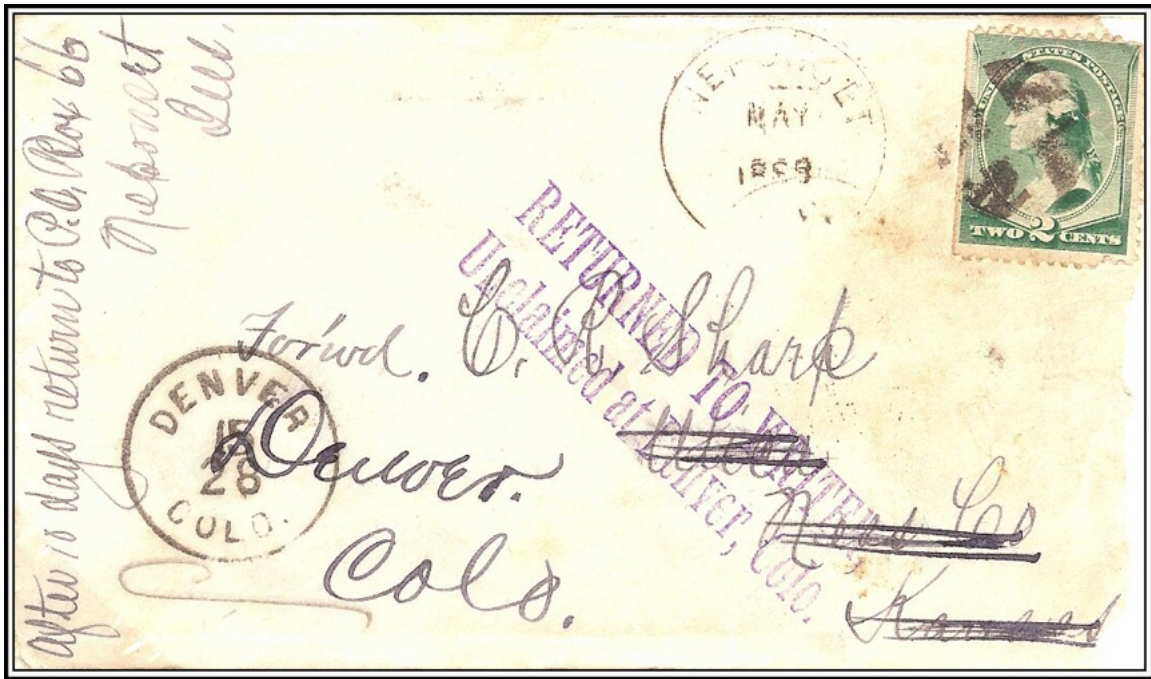 after 10 days return to P.O. Box 66
Neponset
Ills.
NEPONSET
MAY
1888
UNITED STATES POSTAGE
TWO 2 CENTS
RETURNED TO WRITER
Unclaimed at Denver, Colo.
For'wd.
C. A. Sharp
Ness Co
Kansas
Denver.
Colo.
DENVER
28
COLO.